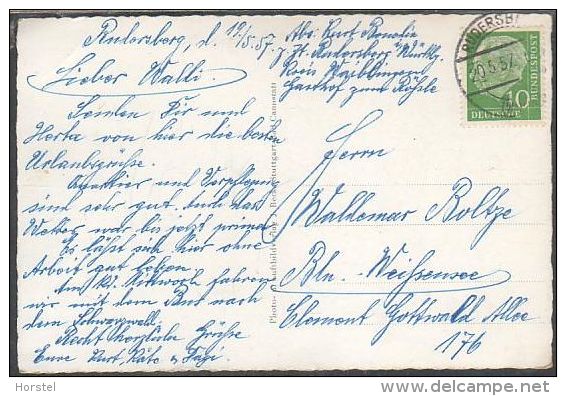 Rudersberg, d. 19/5.57.
Lieber Walli!
Senden Dir und
Herta von hier die besten
Urlaubsgrüsse.
Quartier und Verpflegung
sind sehr gut. Auch das
Wetter war bis jetzt prima.
Es lässt sich hier ohne
Arbeit gut leben.
Am Mittwoch fahren
wir mit dem Bus nach
dem Schwarzwald.
Recht herzliche Grüsse
Eure Kurt, Käte u.
Abs. Kurt
z. Zt. Rudersberg Württbg.
Kreis Waiblingen
Gasthof zum Rössle
RUDERSB
20.5.57
10
DEUTSCHE
BUNDESPOST
Stuttgart-Bad Cannstatt
Herrn
Waldemar Boltze
Bln.-Weissensee
Clement Gottwald Allee
176
Horstel
http://www.delcampe.net